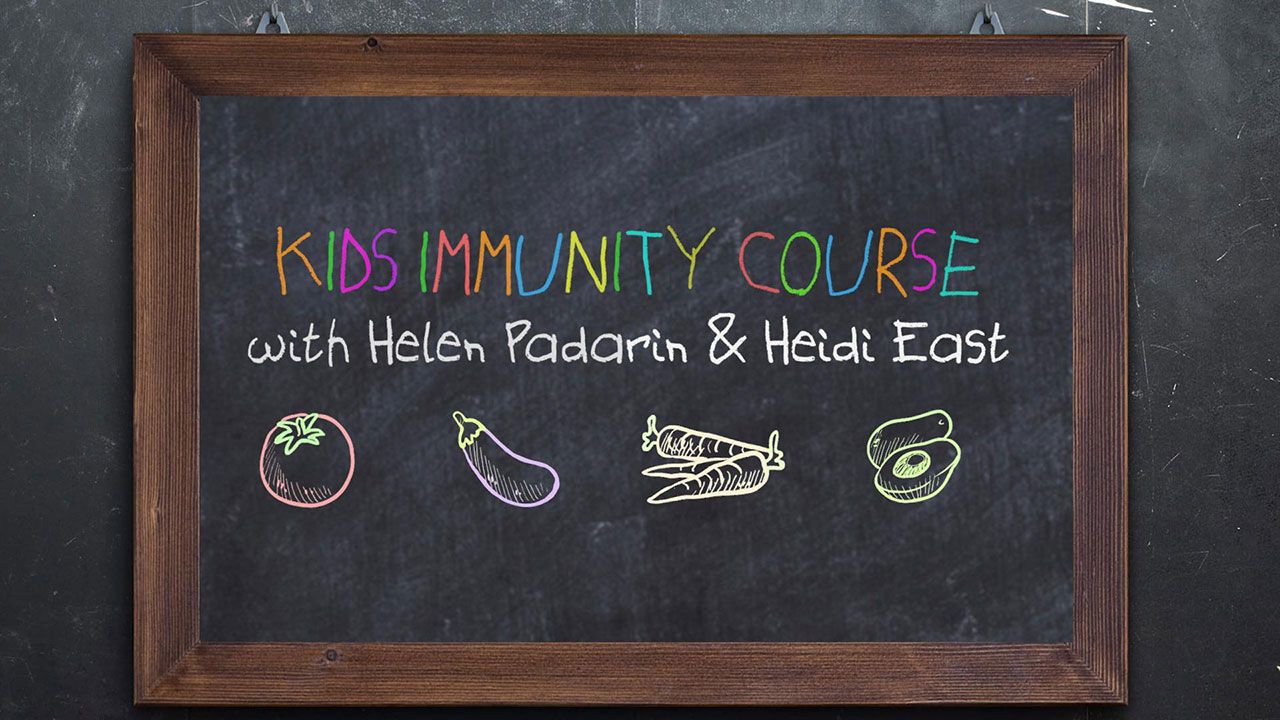 KIDS IMMUNITY COURSE
with Helen Padarin & Heidi East